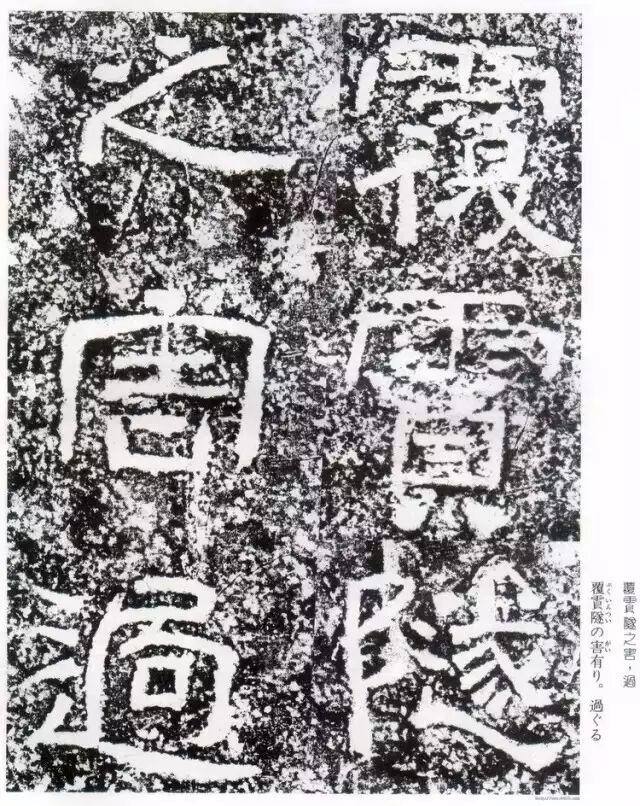 覆霣隧
之害過
覆霣隧之害，過
ふくいんつい がい
覆霣隧の害有り。過ぐる